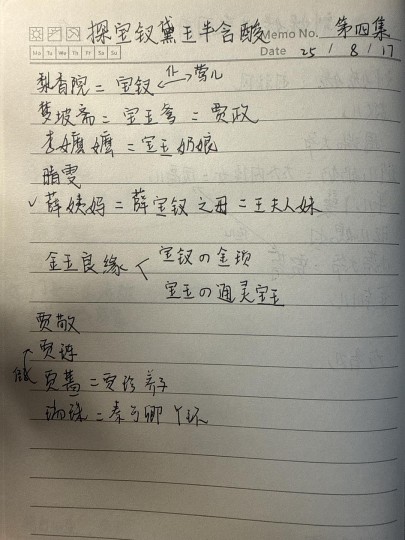 探宝钗黛玉半含酸 Memo No. 第四集
Mo Tu We Th Fr Sa Su Date 25 / 8 / 17
梨香院 = 宝钗 ←仆→ 莺儿
梦坡斋 = 宝玉 = 贾政
李嬷嬷 = 宝玉奶娘
晴雯
✓ 薛姨妈 = 薛宝钗之母 = 王夫人妹
金玉良缘 < 宝钗の金锁
宝玉の通灵宝玉
贾敬
贾
贾蔷 = 贾珍养子
瑞珠 = 秦可卿丫环